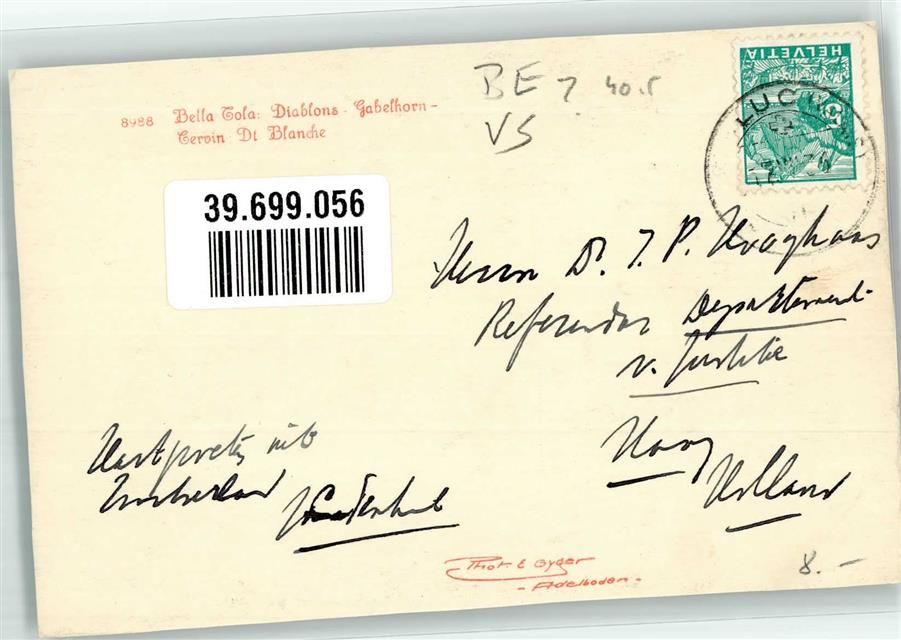 BE ? 40.5
VS
HELVETIA
5
8988 Bella Tola: Diablons - Gabelhorn -
Cervin Dt Blanche
39.699.056
Herrn Dr. J. P. Hooghaas
Referendar Departement
v. Justitie
Haag
Holland
uit
Zwitserland
Phot. E. Gyger
- Adelboden -
8.-